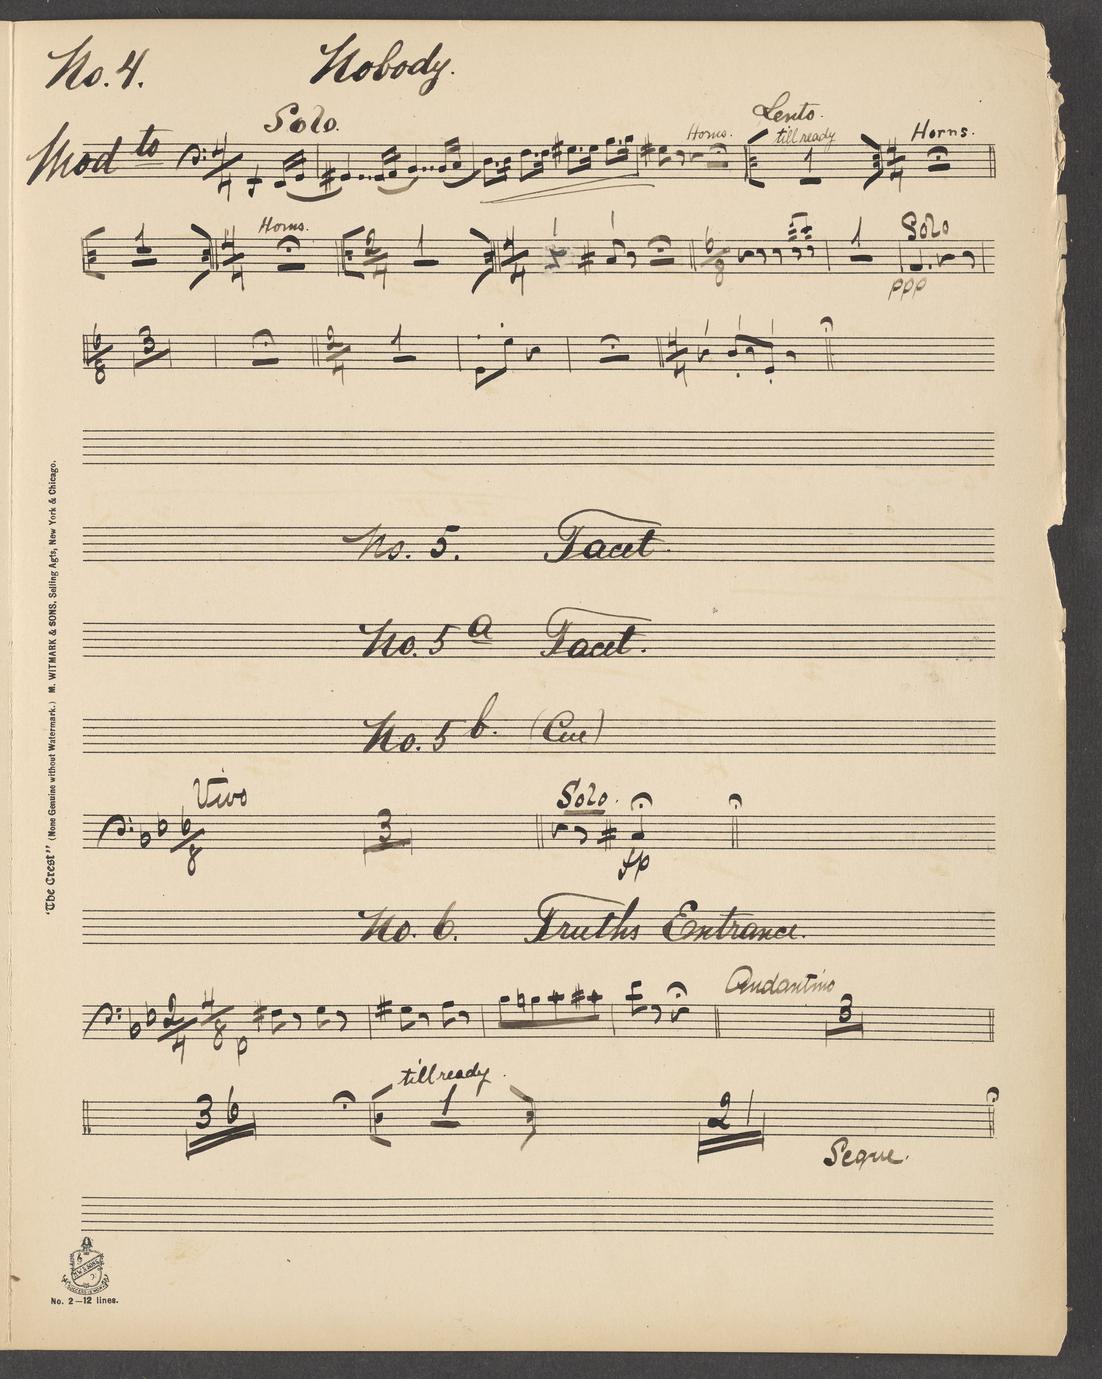 No. 4. Nobody.
Solo. Lento.
Mod to Horns. till ready Horns.
4 4 1 4 4
1 4 4 Horns. 2 4 1 4 4 6 8 1 Solo
ppp
6 8 3 2 4 1 4 4
No. 5. Tacet.
No. 5 a Tacet.
No. 5 b. (Cue)
Vivo Solo.
6 8 3
fp
No. 6. Truths Entrance.
Andantino
2 4 4 8 3
p
till ready
36 1 21
Segue.
"The Crest" (None Genuine without Watermark.) M. WITMARK & SONS, Selling Agts, New York & Chicago.
No. 2—12 lines.